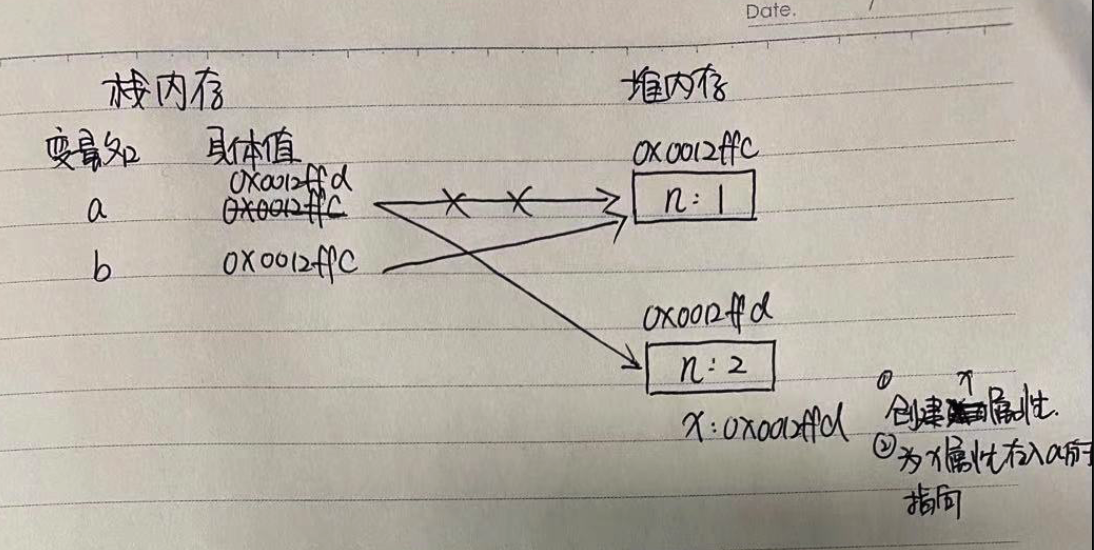 Date. /
栈内存 堆内存
变量名 具体值
0x0012ffd
a 0x0012ffc
b 0x0012ffc
0x0012ffc
n: 1
0x0012ffd
n: 2
x: 0x0012ffd
① 创建x属性.
②为x属性存入a所
指向